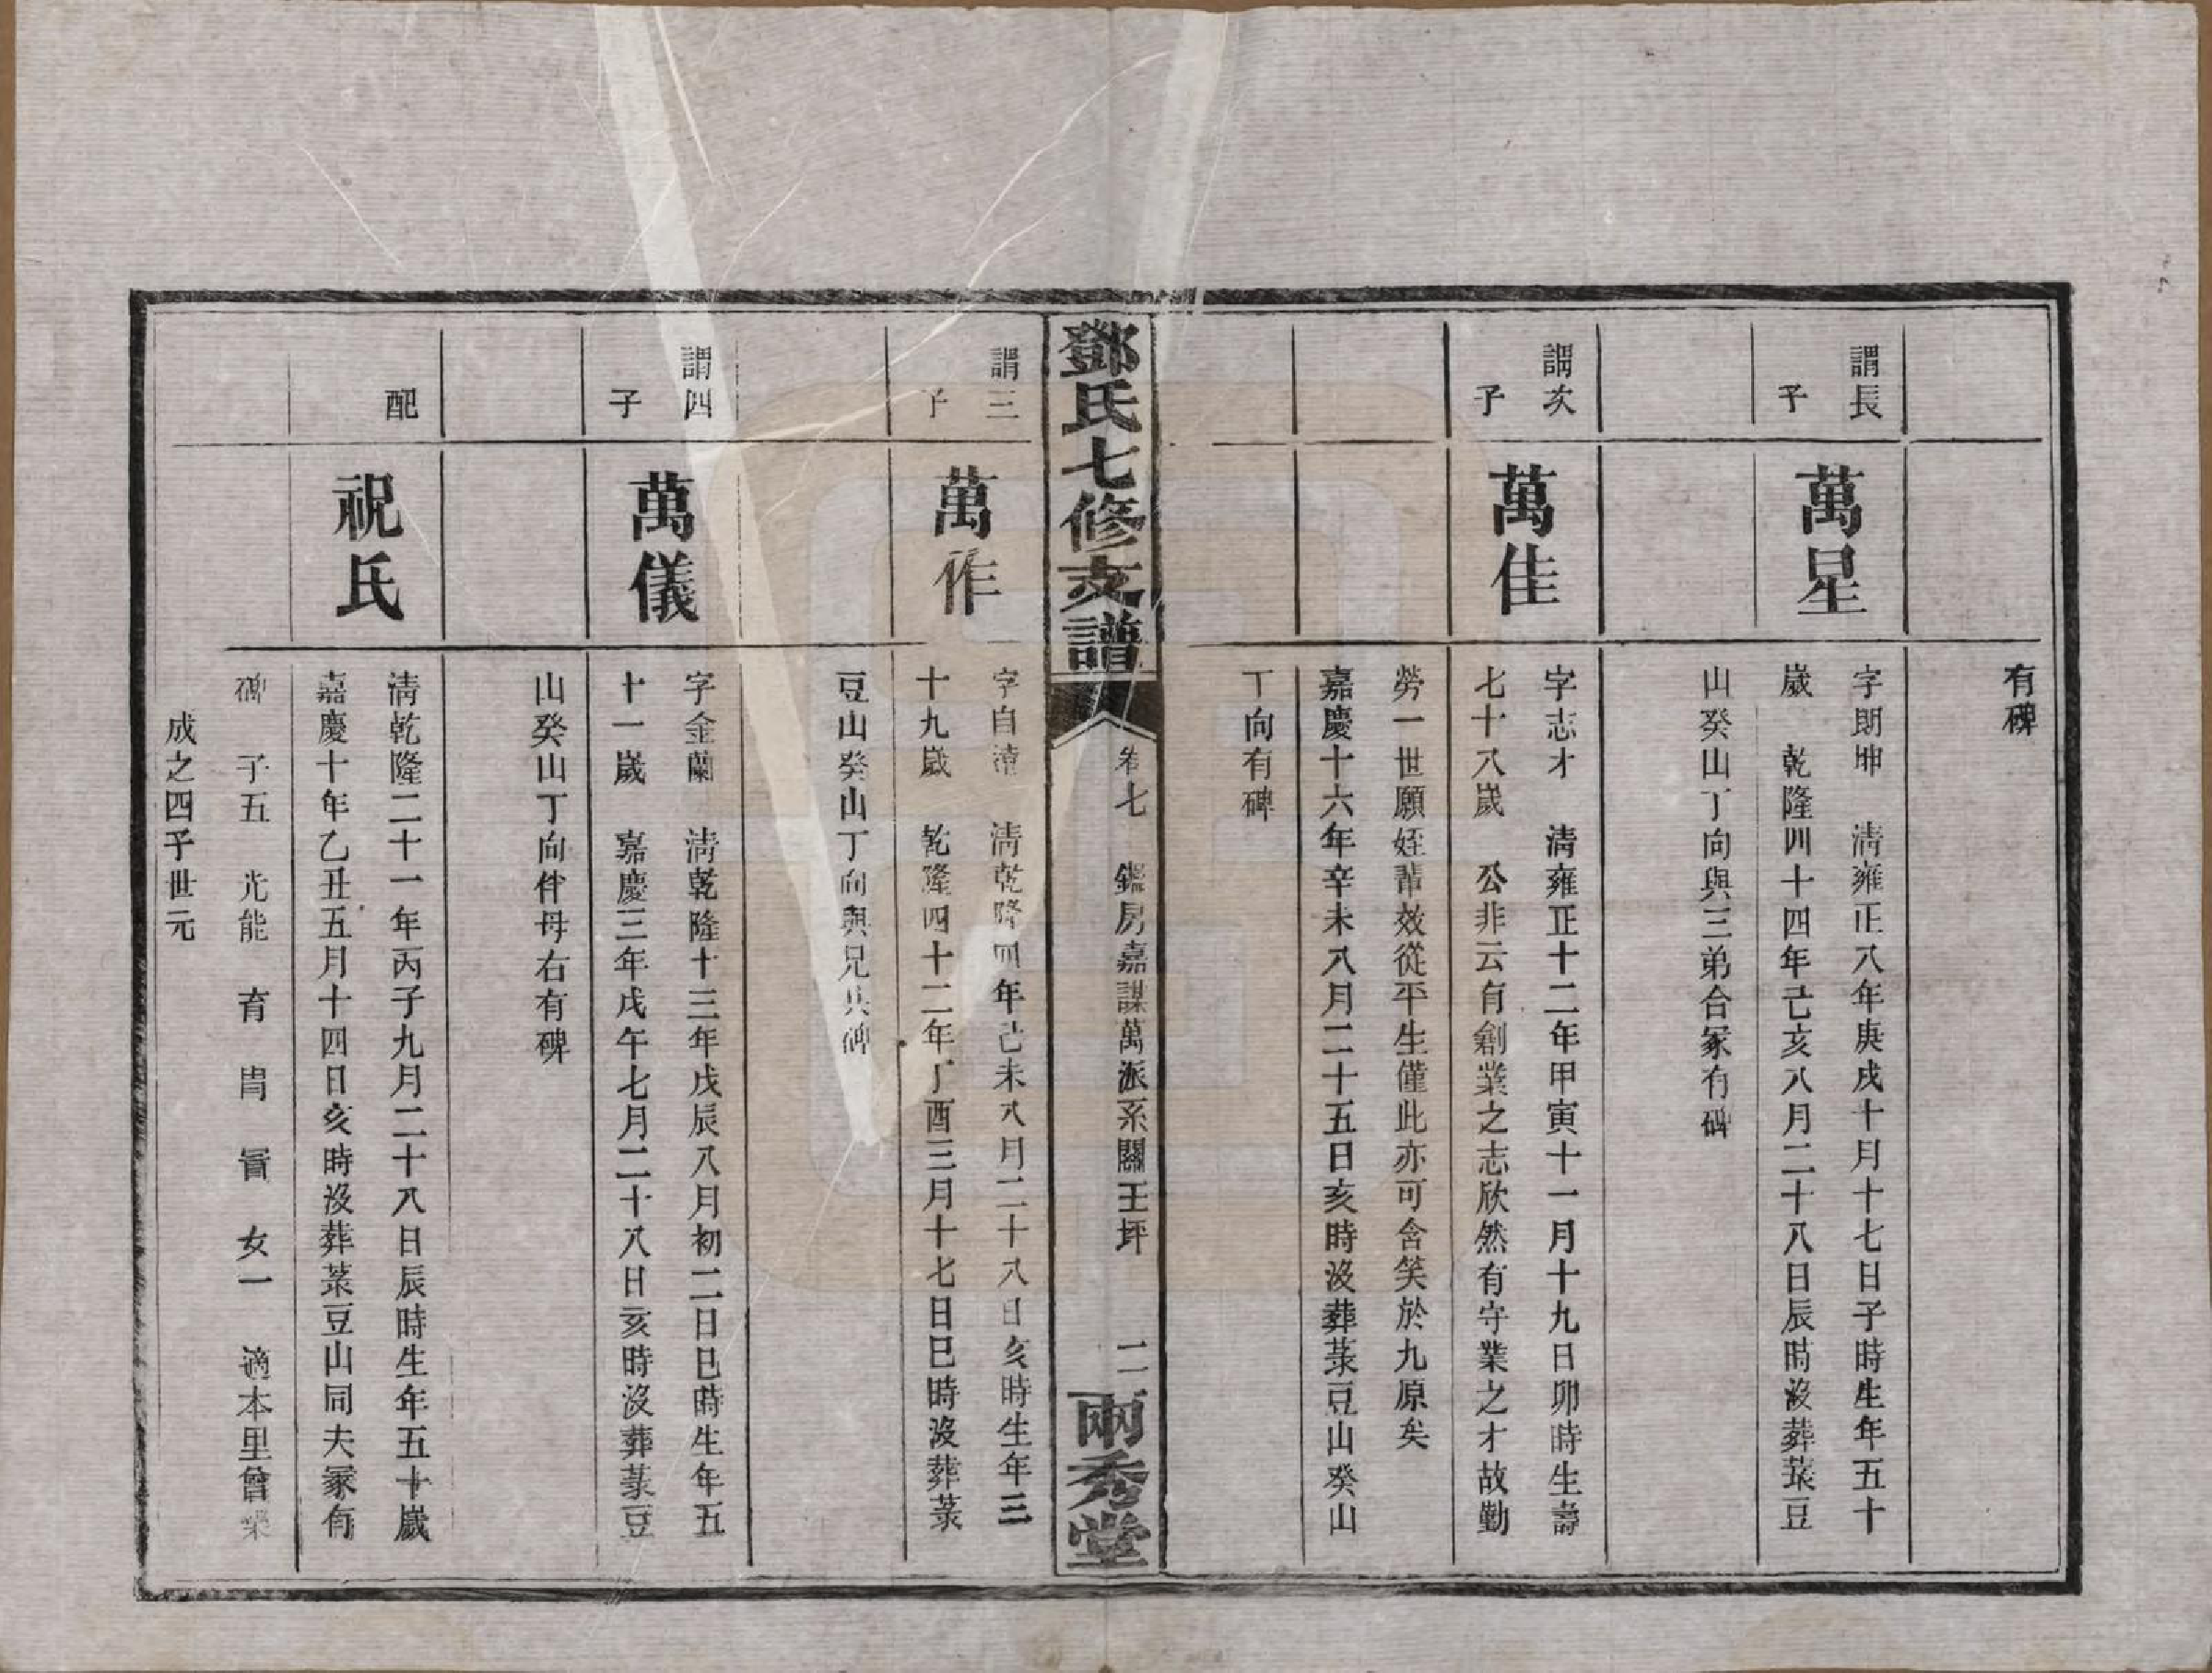 有碑
謂長子
萬星
字朗坤　清雍正八年庚戌十月十七日子時生年五十
歲　乾隆四十四年己亥八月二十八日辰時沒葬菉豆
山癸山丁向與三弟合冢有碑
謂次子
萬佳
字志才　清雍正十二年甲寅十一月十九日卯時生壽
七十八歲　公非云有創業之志欣然有守業之才故勤
勞一世願姪輩效從平生僅此亦可含笑於九原矣
嘉慶十六年辛未八月二十五日亥時沒葬菉豆山癸山
丁向有碑
鄧氏七修支譜
卷七　鑑房嘉謀萬派系關王坪　二
兩秀堂
謂三子
萬作
字自清　清乾隆四年己未八月二十八日亥時生年三
十九歲　乾隆四十二年丁酉三月十七日巳時沒葬菉
豆山癸山丁向與兄共碑
謂四子
萬儀
字金蘭　清乾隆十三年戊辰八月初二日巳時生年五
十一歲　嘉慶三年戊午七月二十八日亥時沒葬菉豆
山癸山丁向伴母右有碑
配
祝氏
清乾隆二十一年丙子九月二十八日辰時生年五十歲
嘉慶十年乙丑五月十四日亥時沒葬菉豆山同夫冢有
碑　子五　光能　育　冑　　女一　適本里曾榮
成之四子世元